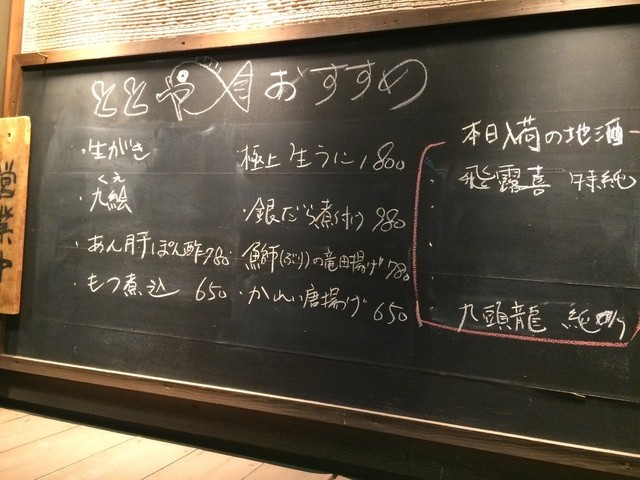 ととや おすすめ
・生がき
くえ
・九絵
・あん肝ぽん酢 780
・もつ煮込 650
・極上生うに 1,800
・銀だら煮付け 980
・鰤(ぶり)の竜田揚げ 780
・かれい唐揚げ 650
本日入荷の地酒
・飛露喜 特純
・九頭龍 純
営業中